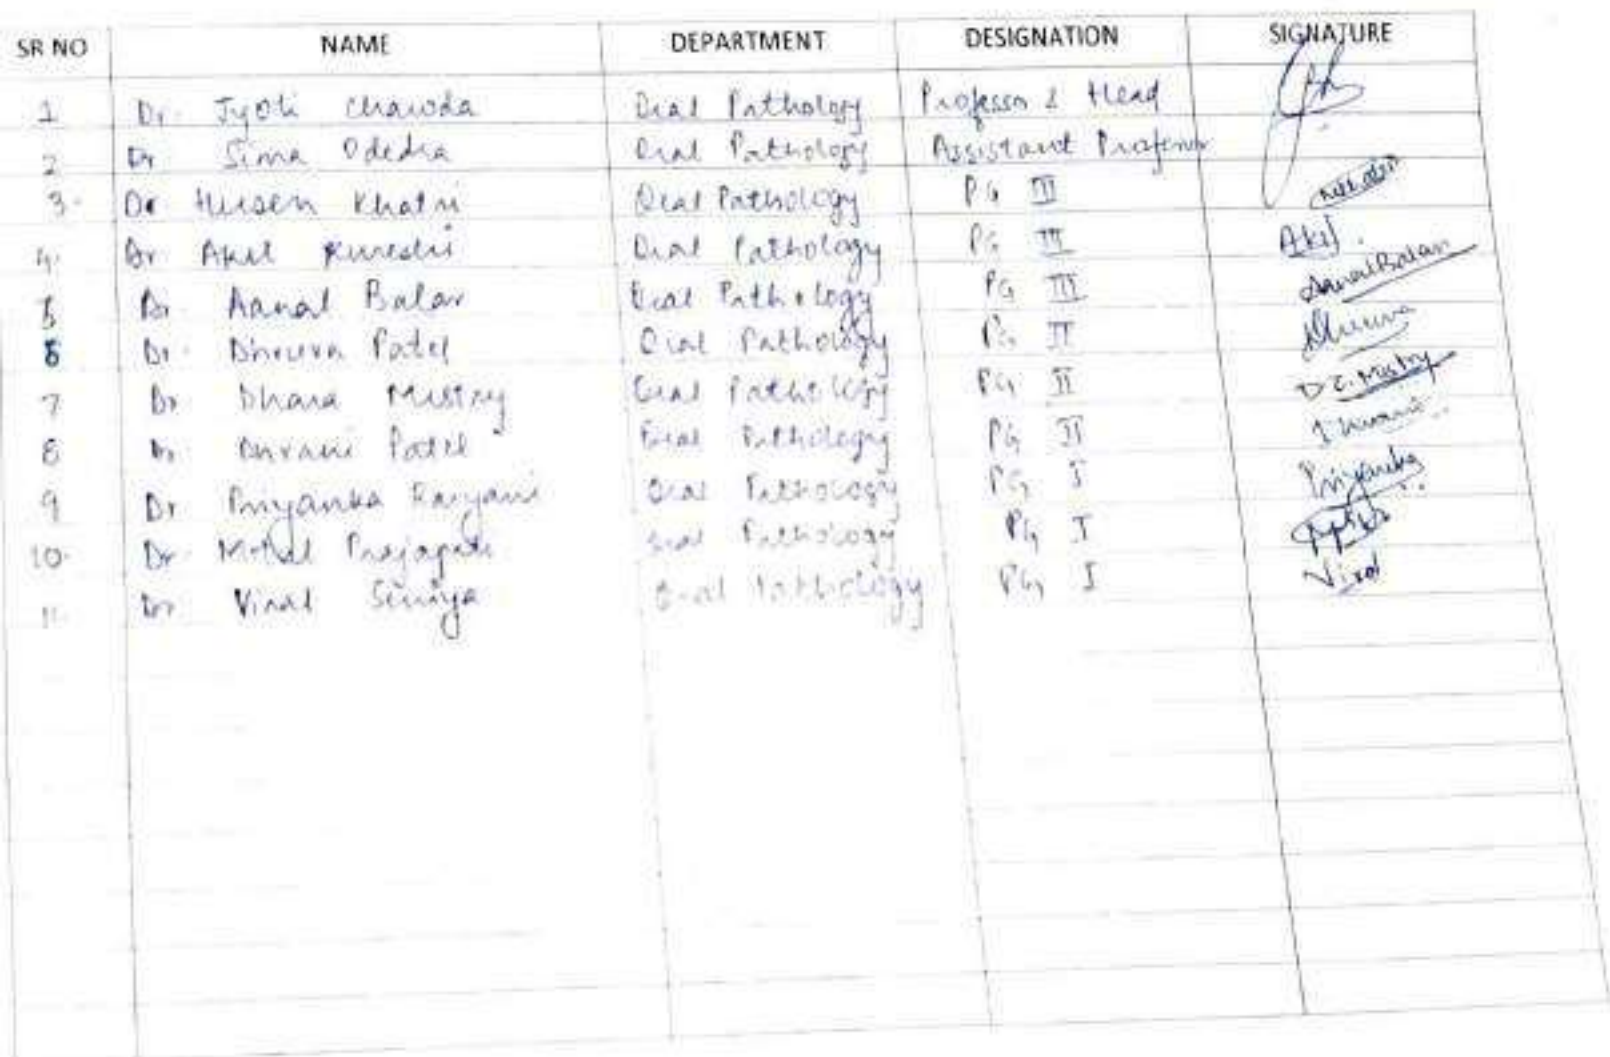 SR NO NAME DEPARTMENT DESIGNATION SIGNATURE
1 Dr. Jyoti Chawda Oral Pathology Professor & Head
2 Dr Sima Odedra Oral Pathology Assistant Professor
3. Dr Husen Khatri Oral Pathology PG III
4. Dr Akil Kureshi Oral Pathology PG III Akil.
5 Dr. Aanal Balar Oral Pathology PG III Aanal Balar
6 Dr. Dhruva Patel Oral Pathology PG II Dhruva
7 Dr Dhara Mistry Oral Pathology PG II D.Z. Mistry
8 Dr. Patel Oral Pathology PG II
9 Dr Priyanka Oral Pathology PG I Priyanka
10. Dr Prajapati Oral Pathology PG I
11. Dr Viral Oral Pathology PG I Viral